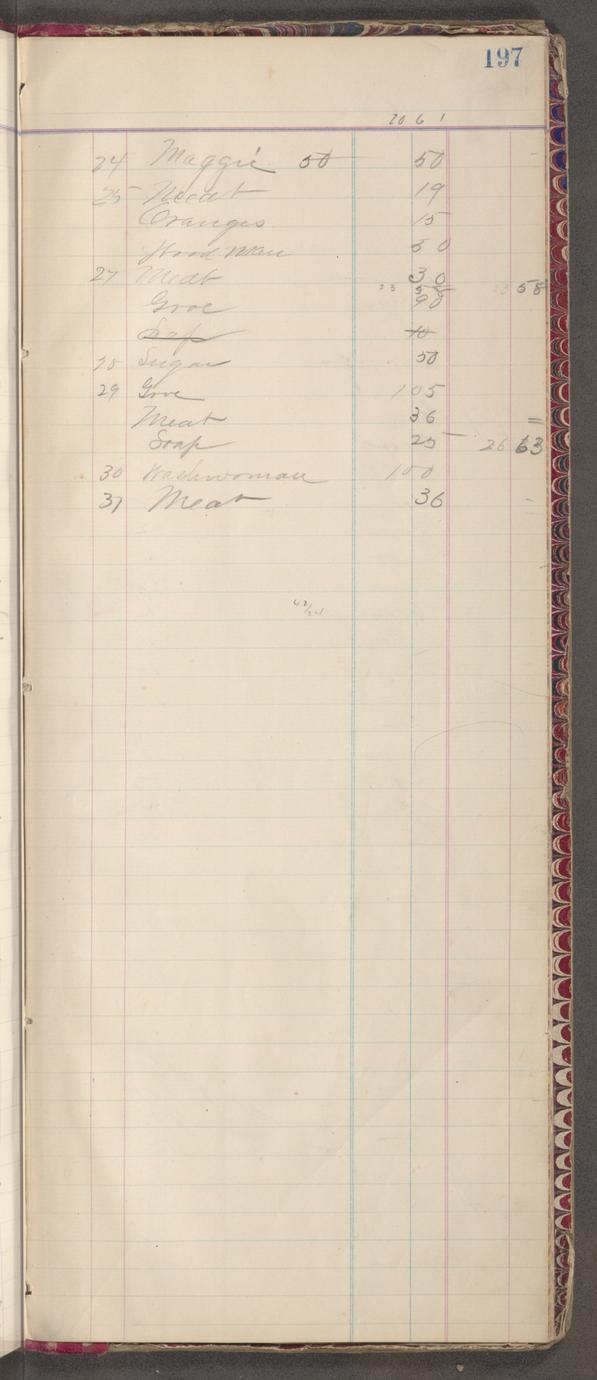 197
20 6 1
24 Maggie 50 50
25 Meat 19
Oranges 15
Wood man 50
27 Meat 30
23 58 58
Groc 90
Soap 10
28 Sugar 50
29 Groc 105
Meat 36
Soap 25 26 63
30 Washwoman 100
31 Meat 36